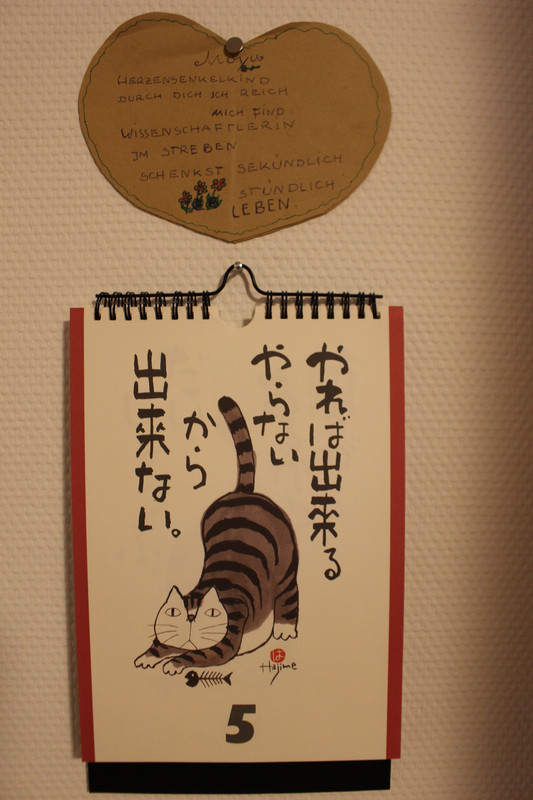 HERZENSENKELKIND
DURCH DICH ICH REICH
MICH FIND
WISSENSCHAFTLERIN
IM STREBEN
SCHENKST SEKÜNDLICH
STÜNDLICH
LEBEN.
やれば出来る
やらない
から
出来ない。
は
Hajime
5